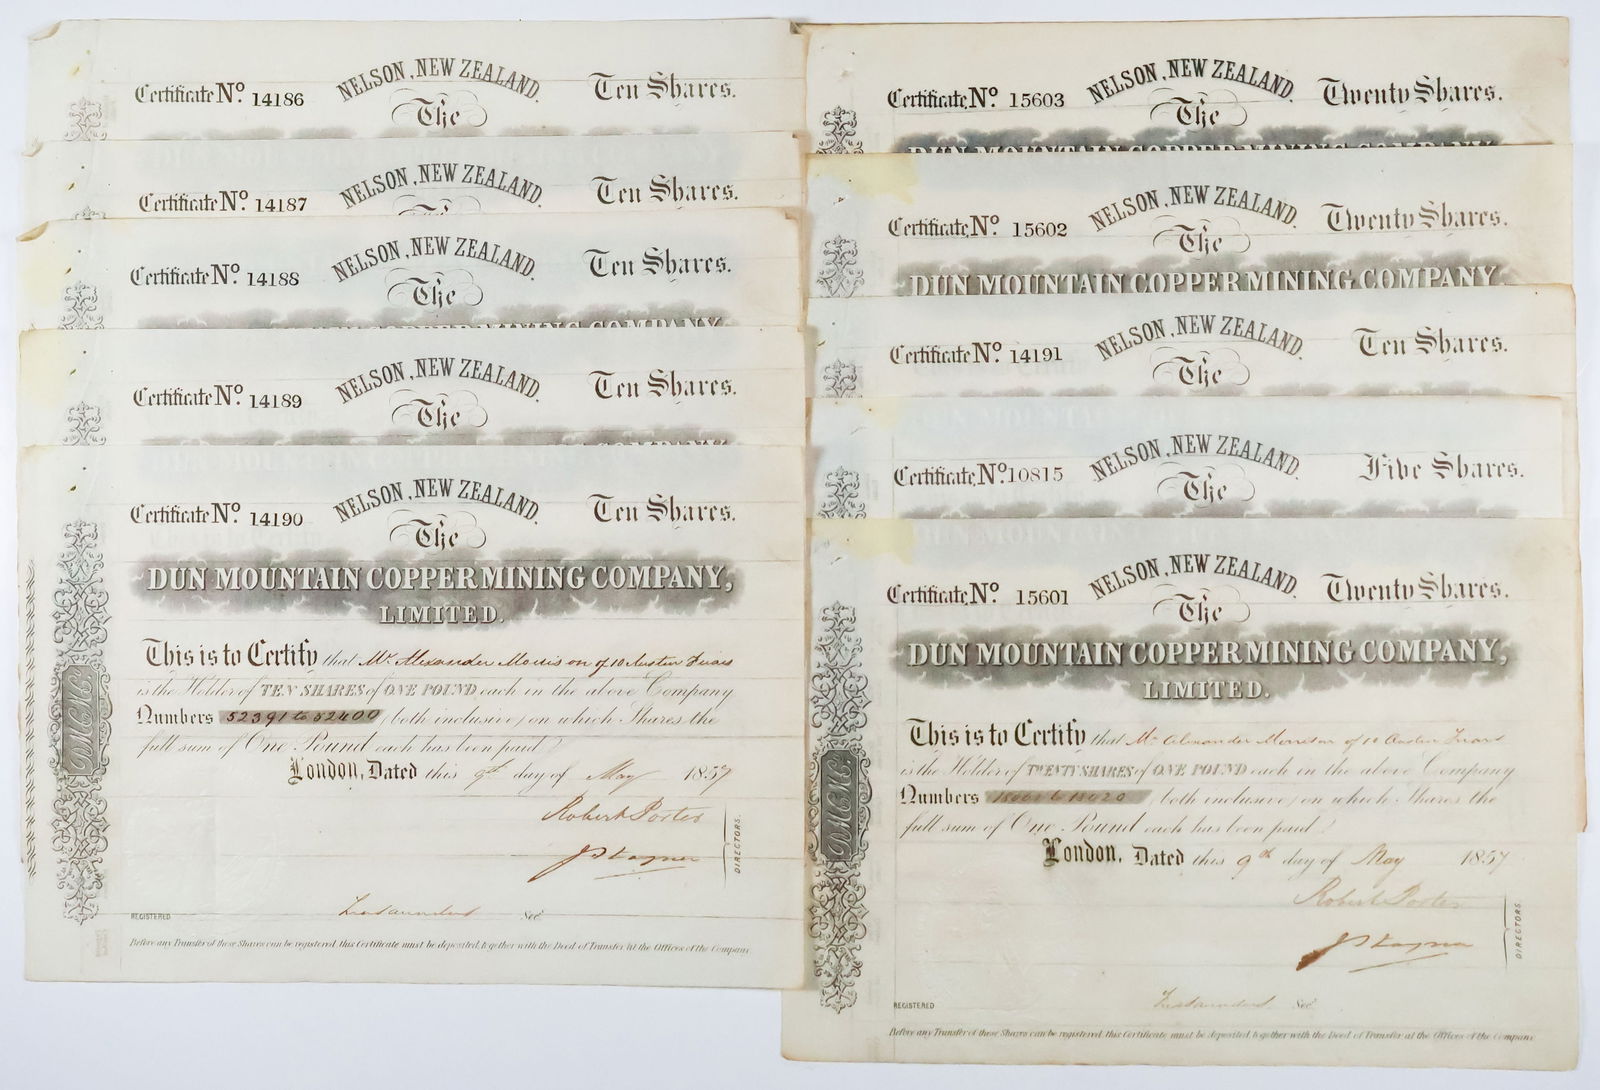 Certificate No. 14186
NELSON, NEW ZEALAND.
Ten Shares.
The
Certificate No. 14187
NELSON, NEW ZEALAND.
Ten Shares.
Certificate No. 14188
NELSON, NEW ZEALAND.
Ten Shares.
The
COPPER MINING COMPANY,
Certificate No. 14189
NELSON, NEW ZEALAND.
Ten Shares.
The
Certificate No. 14190
NELSON, NEW ZEALAND.
Ten Shares.
The
DUN MOUNTAIN COPPER MINING COMPANY,
LIMITED.
This is to Certify that Mr. Alexander Morrison of 10 Austin Friars
is the Holder of TEN SHARES of ONE POUND each in the above Company
Numbers 52391 to 52400 (both inclusive) on which Shares the
full sum of One Pound each has been paid
London, Dated this 9th day of May 1857
Robert Porter
DIRECTORS.
REGISTERED
Sec
Before any Transfer of these Shares can be registered, this Certificate must be deposited, together with the Deed of Transfer at the Offices of the Company
D.M.C.M.C.
Certificate, No. 15603
NELSON, NEW ZEALAND.
Twenty Shares.
The
DUN MOUNTAIN COPPER MINING COMPANY,
Certificate, No. 15602
NELSON, NEW ZEALAND.
Twenty Shares.
The
DUN MOUNTAIN COPPER MINING COMPANY,
Certificate No. 14191
NELSON, NEW ZEALAND.
Ten Shares.
The
Certificate, No. 10815
NELSON, NEW ZEALAND.
Five Shares.
The
Certificate, No. 15601
NELSON, NEW ZEALAND.
Twenty Shares.
The
DUN MOUNTAIN COPPER MINING COMPANY,
LIMITED.
This is to Certify that Mr. Alexander Morrison of 10 Austin Friars
is the Holder of TWENTY SHARES of ONE POUND each in the above Company
Numbers to 18020 (both inclusive) on which Shares the
full sum of One Pound each has been paid
London, Dated this 9th day of May 1857
Robert Porter
DIRECTORS.
REGISTERED
Sec
Before any Transfer of these Shares can be registered, this Certificate must be deposited, together with the Deed of Transfer at the Offices of the Company
D.M.C.M.C.